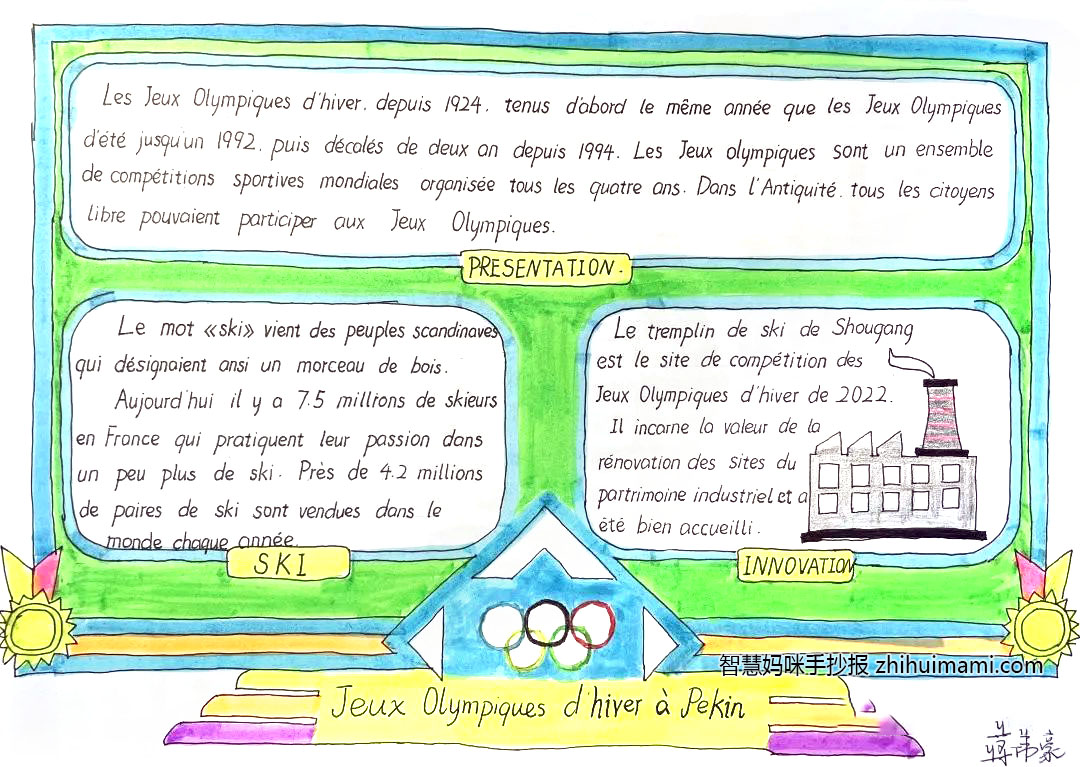 Les Jeux Olympiques d'hiver. depuis 1924. tenus d'abord le même année que les Jeux Olympiques
d'été jusqu'un 1992. puis décalés de deux an depuis 1994. Les Jeux olympiques sont un ensemble
de compétitions sportives mondiales organisée tous les quatre ans. Dans l'Antiquité. tous les citoyens
libre pouvaient participer aux Jeux Olympiques.
PRESENTATION.
Le mot «ski» vient des peuples scandinaves
qui désignaient ansi un morceau de bois.
Aujourd'hui il y a 7.5 millions de skieurs
en France qui pratiquent leur passion dans
un peu plus de ski. Près de 4.2 millions
de paires de ski sont vendues dans le
monde chaque année.
SKI
Le tremplin de ski de Shougang
est le site de compétition des
Jeux Olympiques d'hiver de 2022.
Il incarne la valeur de la
rénovation des sites du
partrimoine industriel et a
été bien accueilli.
INNOVATION
智慧妈咪手抄报 zhihuimami.com
Jeux Olympiques d'hiver à Pekin